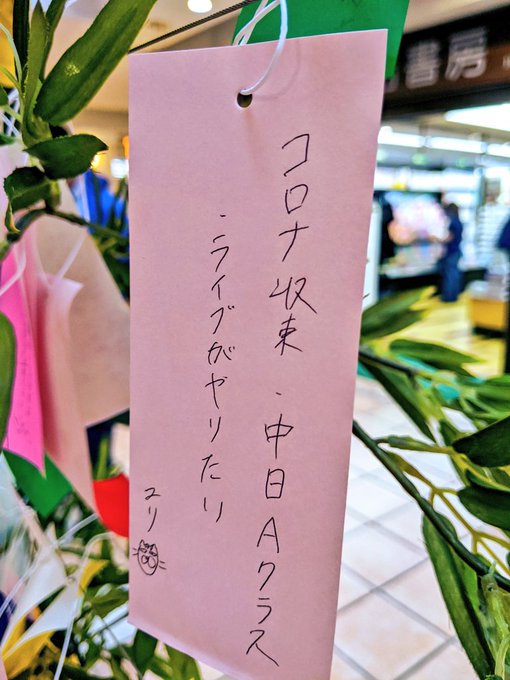 コロナ収束・中日Aクラス
・ライブがやりたい
ユリ
書房